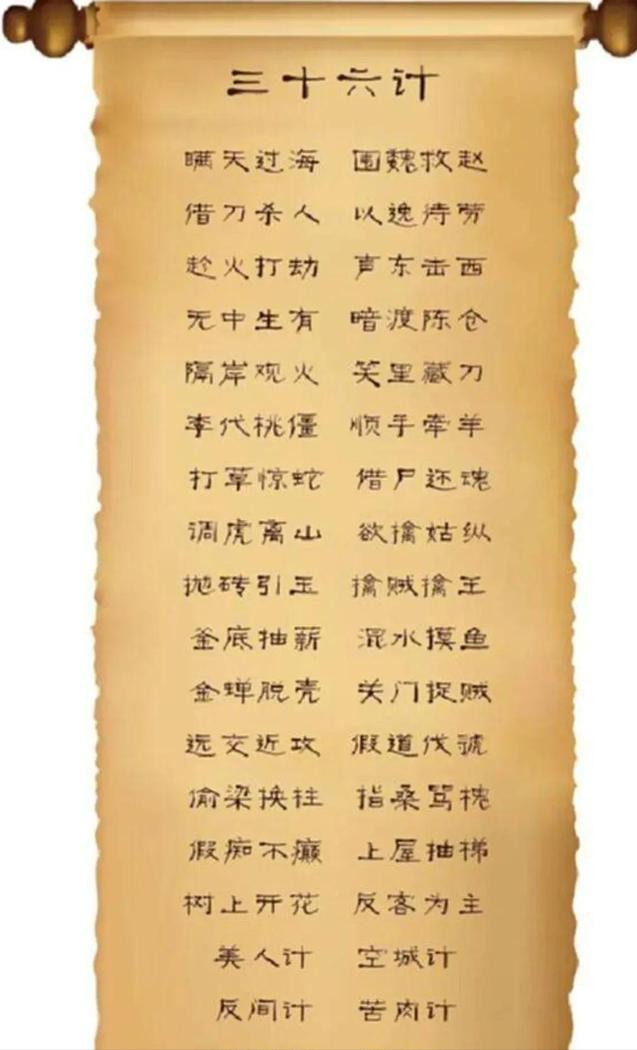 三十六计
瞒天过海 围魏救赵
借刀杀人 以逸待劳
趁火打劫 声东击西
无中生有 暗渡陈仓
隔岸观火 笑里藏刀
李代桃僵 顺手牵羊
打草惊蛇 借尸还魂
调虎离山 欲擒姑纵
抛砖引玉 擒贼擒王
釜底抽薪 混水摸鱼
金蝉脱壳 关门捉贼
远交近攻 假道伐虢
偷梁换柱 指桑骂槐
假痴不癫 上屋抽梯
树上开花 反客为主
美人计 空城计
反间计 苦肉计